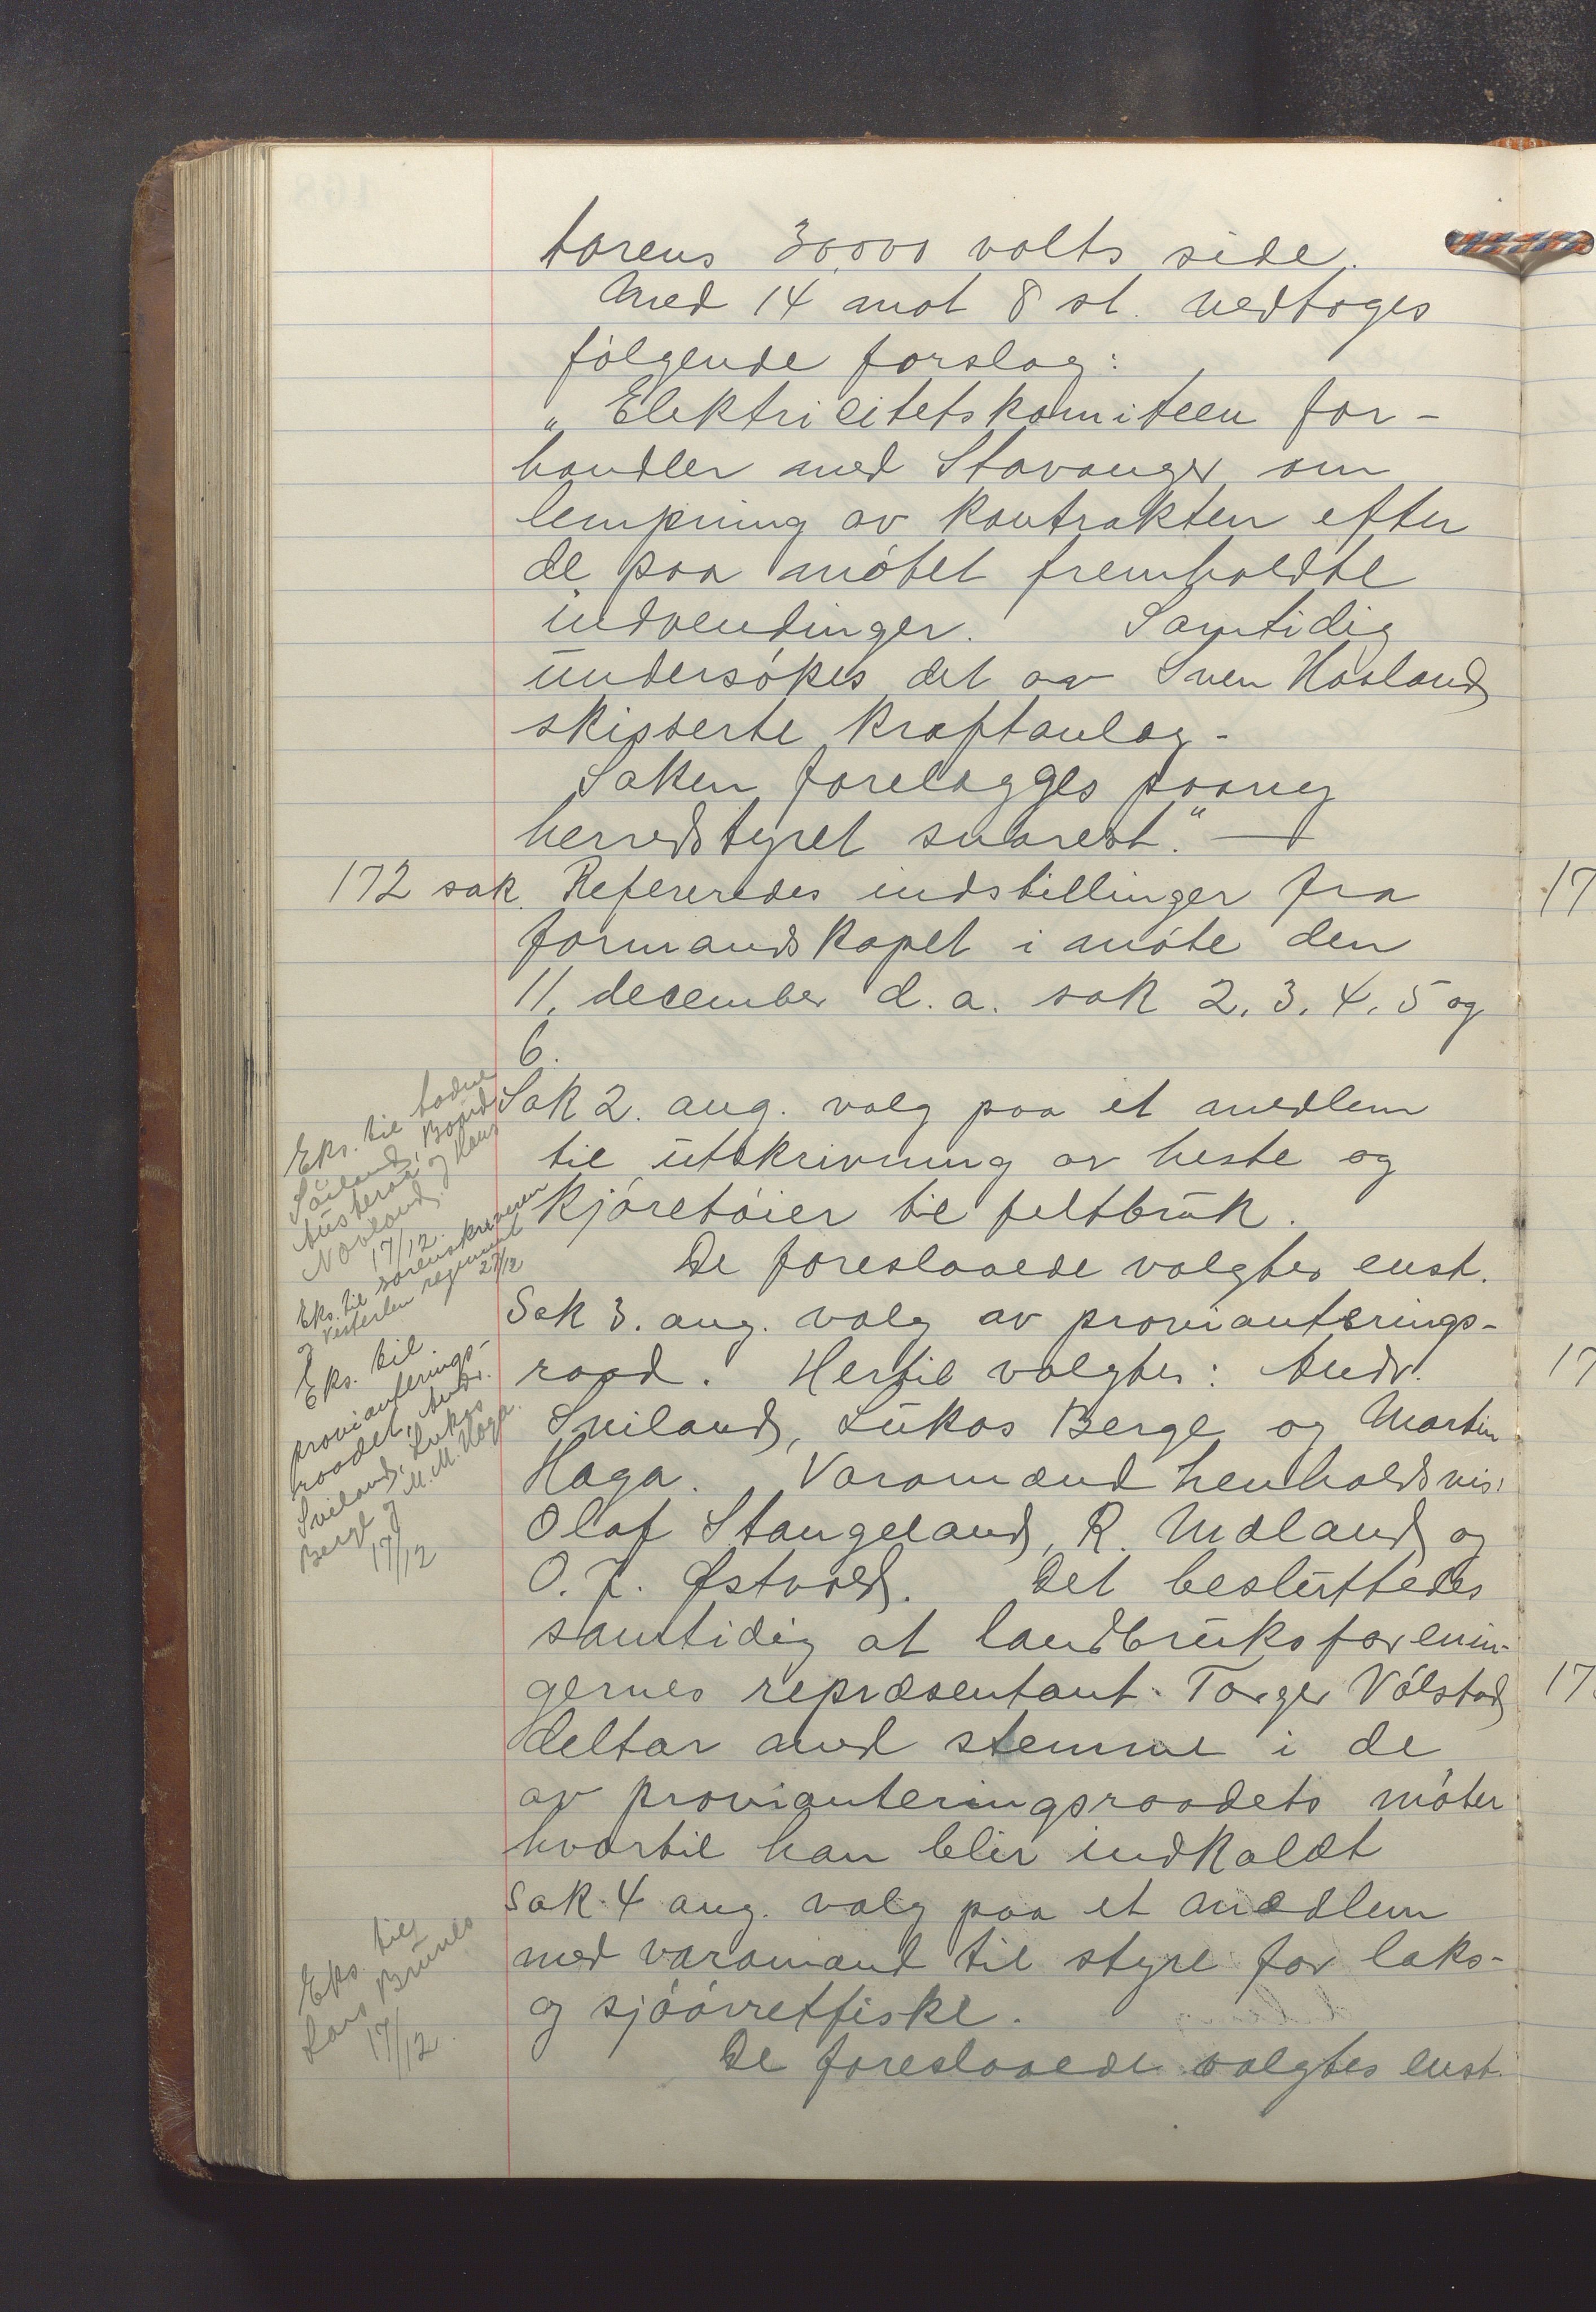 torens 30,000 volts side.
Med 14 mot 8 st. vedtoges
følgende forslag:
„Elektricitetskomiteen for-
handler med Stavanger om
lempning av kontrakten efter
de paa møtet fremholdte
indvendinger. Samtidig
undersøkes det av Sven Høiland
skisserte kraftanlæg.
Saken forelægges paany
herredstyret snarest." —
172 sak. Refereredes indstillinger fra
formandskapet i møte den
11. december d. a. sak 2, 3, 4, 5 og
6.
Sak 2. ang. valg paa et medlem
til utskrivning av heste og
kjøretøier til feltbruk.
De foreslaaede valgtes enst.
Sak 3. ang. valg av provianterings-
raad. Hertil valgtes: Andr.
Sviland, Lukas Berge og Martin
Haga. Varamænd henholdsvis:
Olaf Stangeland, R. Mæland og
O. J. Østvold. Det besluttedes
samtidig at landbruksforenin-
gernes repræsentant Torger Vølstad
deltar med stemme i de
av provianteringsraadets møter
hvortil han blir indkaldt
Sak 4 ang. valg paa et medlem
med varamand til styre for laks-
og sjøørretfiske.
De foreslaaede valgtes enst.
Eks. til Tadne
Søiland, Baard
Austeraa og Hans
Norland
17/12.
Eks. til sorenskriveren
og Vesterlen regiment
27/12
Eks. til
provianterings-
raadet, Andr.
Sviland, Lukas
Berge og M. M. Haga.
17/12
Eks. til
Lars Brunes
17/12.
17
17
17